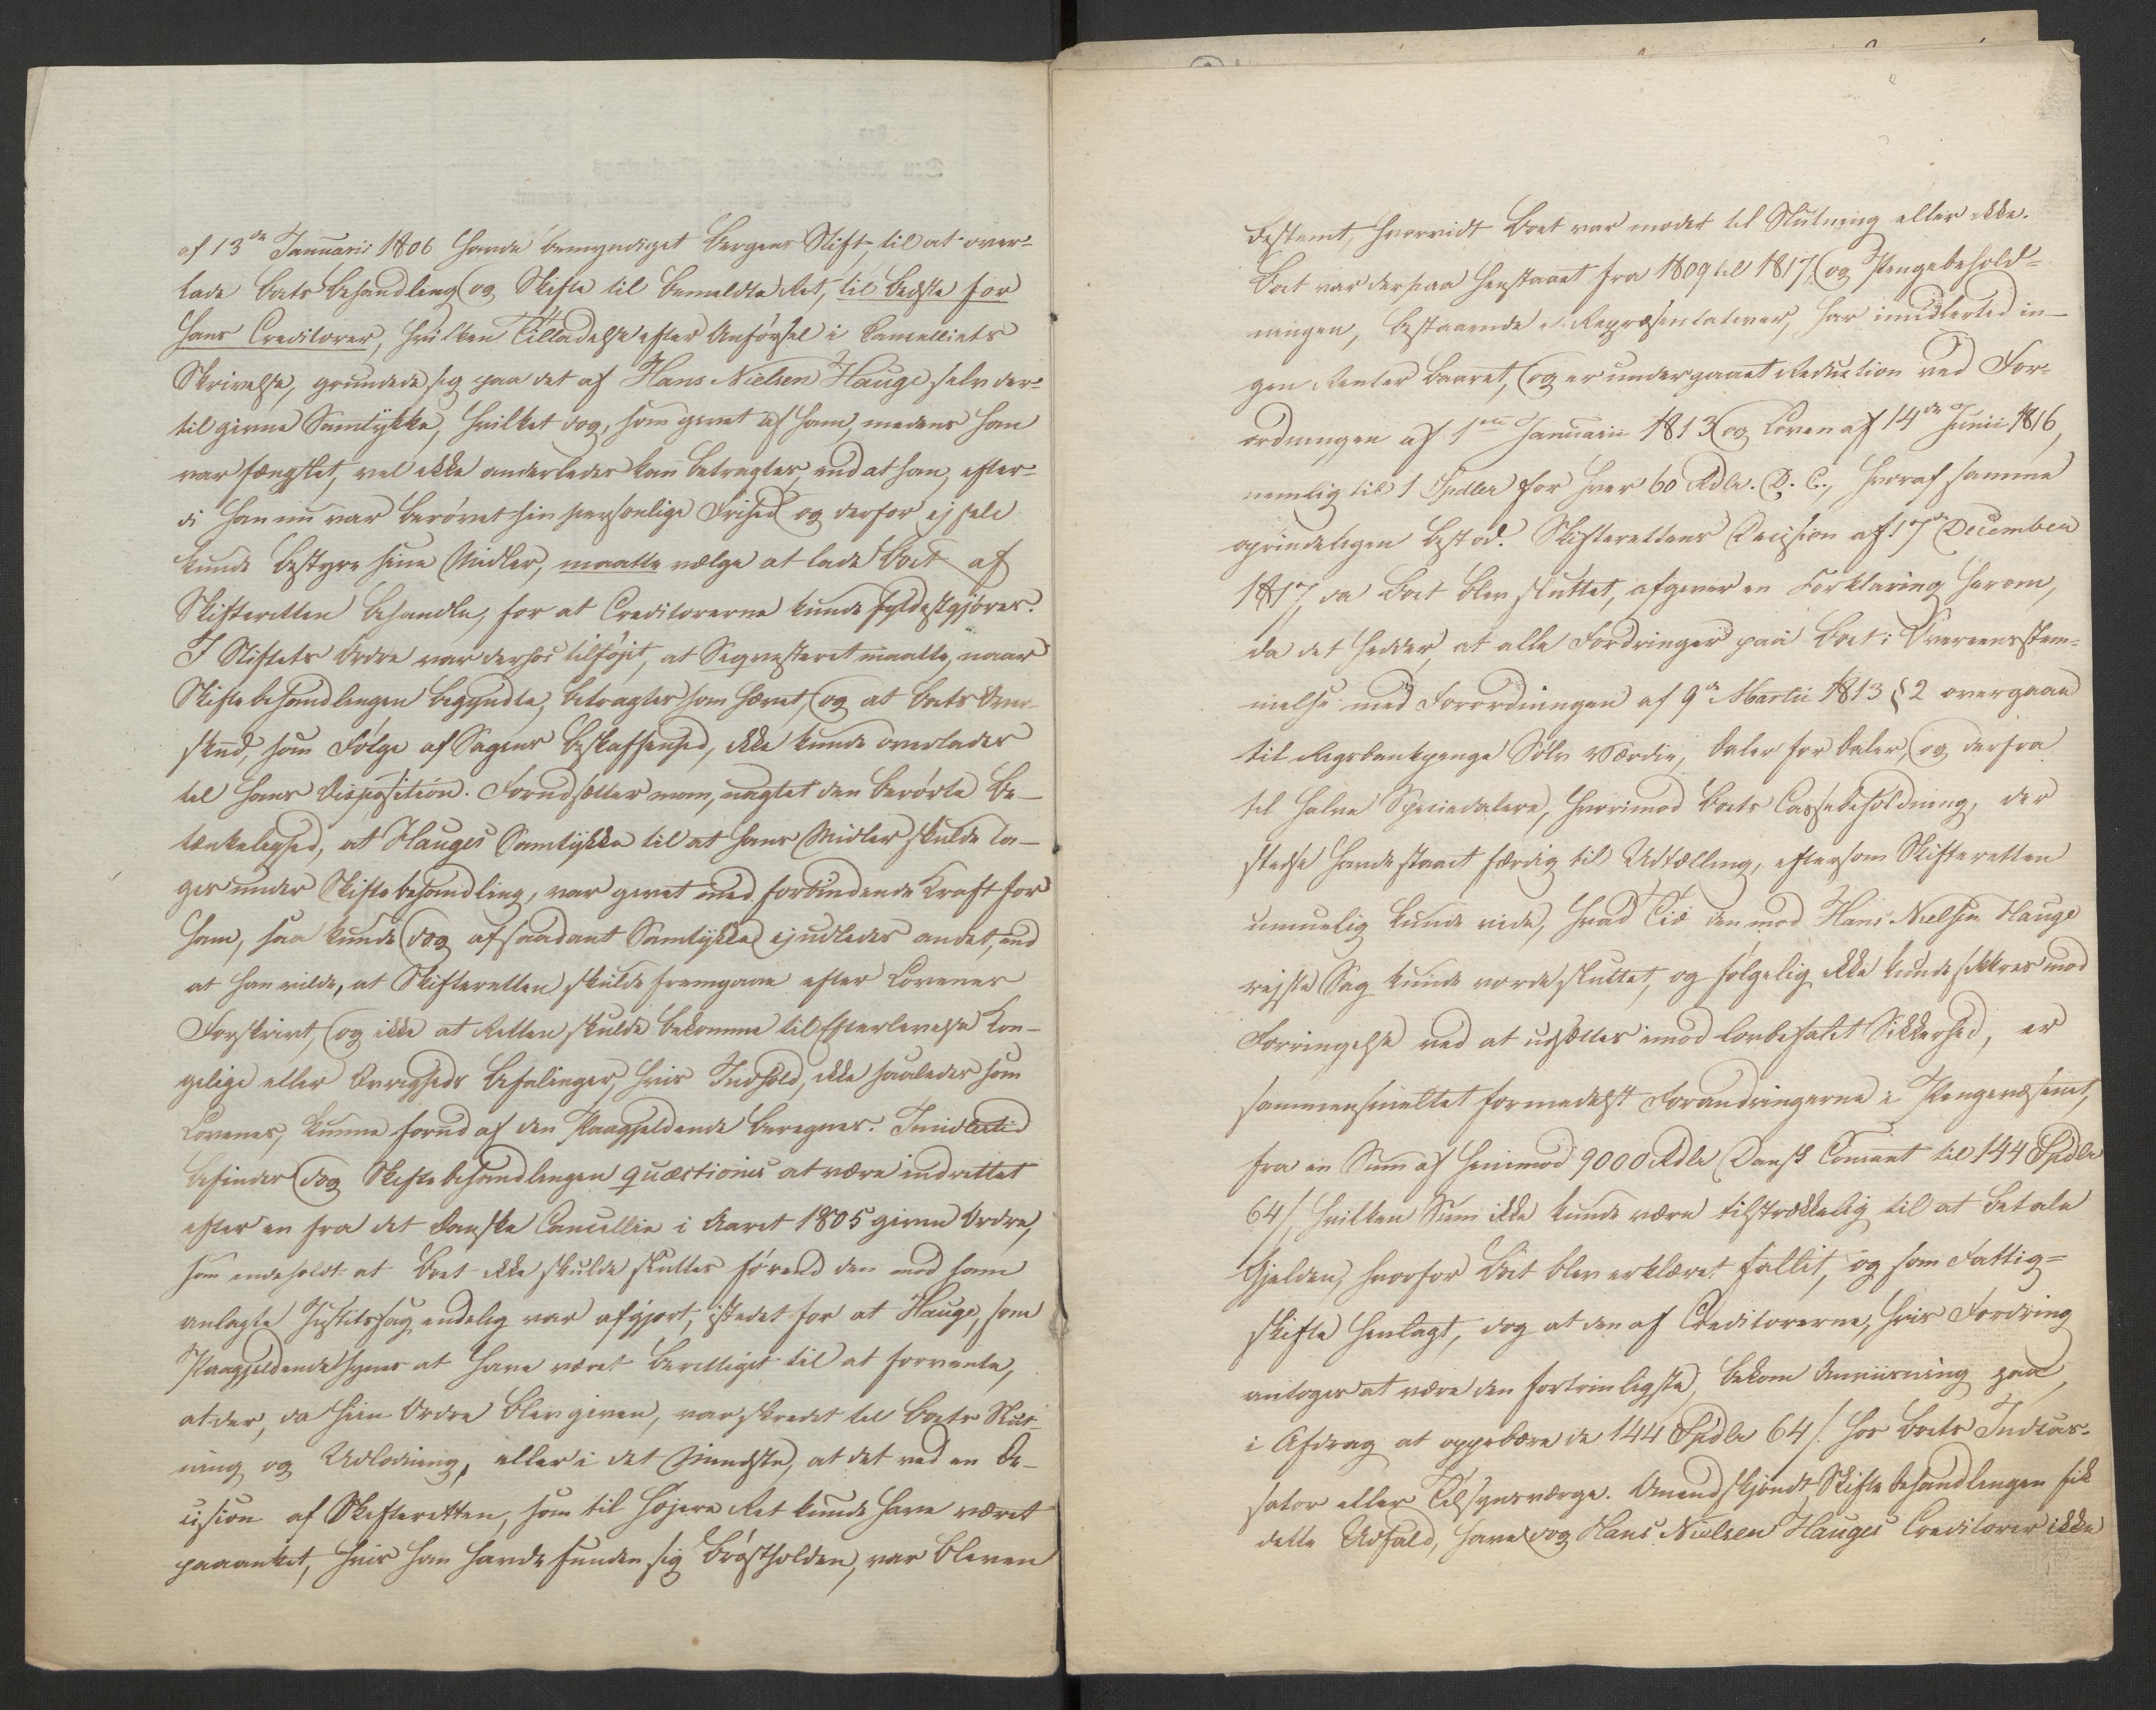 af 13de Januarii 1806 havde bemyndiget Bergens Stift, til at over-
lade Boets Behandling og Skifte til bemeldte Ret, til Bedste for
Hans Creditorer, hvilken Tilladelse efter Anførsel i Cancelliets
Skrivelse, grundede sig paa det af Hans Nielsen Hauge selv der-
til givne Samtykke, hvilket dog, som givet af ham, medens han
var fængslet, vel ikke anderledes kan betragtes, end at han, efter-
di han nu var berøvet sin personlige Frihed og derfor ej selv
kunde bestyre sine Midler, maatte vælge at lade Boet af
Skifteretten behandle, for at Creditorerne kunde fyldestgjøres.
I Stiftets Ordre var derhos tilføjet, at Seqvesteret maatte, naar
Skiftebehandlingen begyndte, betragtes som hævet, og at Boets Over-
skud, som Følge af Sagens Beskaffenhed, ikke kunde overlades
til hans Disposition. Forudsætter man, uagtet den berørte Be-
tænkelighed, at Hauges Samtykke til at hans Midler skulde ta-
ges under Skiftebehandling, var givet med forbindende Kraft for
ham, saa kunde dog af saadant Samtykke ej udledes andet, end
at han vilde, at Skifteretten skulde fremgaae efter Lovenes
Forskrivt, og ikke at Retten skulde bekomme til Efterlevelse Kon-
gelige eller Øvrigheds Befalinger, hvis Indhold, ikke saaledes som
Lovenes, kunne forud af den Paagjeldende beregnes. Imidlertid
befindes dog Skiftebehandlingen quæstionis at være indrettet
efter en fra det danske Cancellie i Aaret 1805 given Ordre,
som indeholdt: at Boet ikke skulde sluttes førend den mod ham
anlagte Justitssag endelig var afgjort, istedet for at Hauge, som
Paagjeldende synes at have været berettiget til at forvente,
at der, da hiin Ordre blev given, var skredet til Boets Slut-
ning og Udlodning, eller i det Mindste, at det ved en De-
cision af Skifteretten, som til højere Ret kunde have været
paaanket, hvis han havde funden sig brøstholden, var bleven
bestemt, hvorvidt Boet var modet til Slutning eller ikke.
Boet var derpaa henstaaet fra 1809 til 1817, og Pengebehold-
ningen, bestaaende i Repræsentativer, har imidlertid in-
gen Renter baaret, og er undergaaet Reduction ved For-
ordningen af 5te Januarii 1813 og Loven af 14de Junii 1816,
nemlig til 1 Spdler for hver 60 Rdlr. D. C., hvoraf samme
oprindeligen bestod. Skifterettens Decision af 17de December
1817, da Boet blev sluttet, afgiver en Forklaring herom,
da det hedder, at alle Fordringer paa Boet i Overeensstem-
melse med Forordningen af 9de Martii 1813 § 2 overgaae
til Rigsbankpenge Sølv Værdie, Daler for Daler, og derfra
til halve Speciedalere, hvorimod Boets Cassebeholdning, der
stedse havde staaet færdig til Udtælling, eftersom Skifteretten
umuelig kunde vide, hvad Tid den mod Hans Nielsen Hauge
rejste Sag kunde vorde sluttet, og følgelig ikke kunde sikkres mod
Forringelse ved at udsættes imod lovbefalet Sikkerhed, er
sammensmeltet formedelst Forandringerne i Pengevæsenet,
fra en Sum af henimod 9000 Rdlr Dansk Courant til 144 Spdlr
64 s, hvilken Sum ikke kunde være tilstrækkelig til at betale
Gjelden, hvorfor Boet blev erklæret fallit, og som Fattig-
skifte henlagt, dog at den af Creditorerne, hvis Fordring
antoges at være den fortrinligste, bekom Anviisning paa,
i Afdrag at oppebære de 144 Spdlr 64 s. hos Boets Incas-
sator eller Tilsynsværge. Uanseedt Skiftebehandlingen fik
dette Udfald, have dog Hans Nielsen Hauges Creditorer ikke